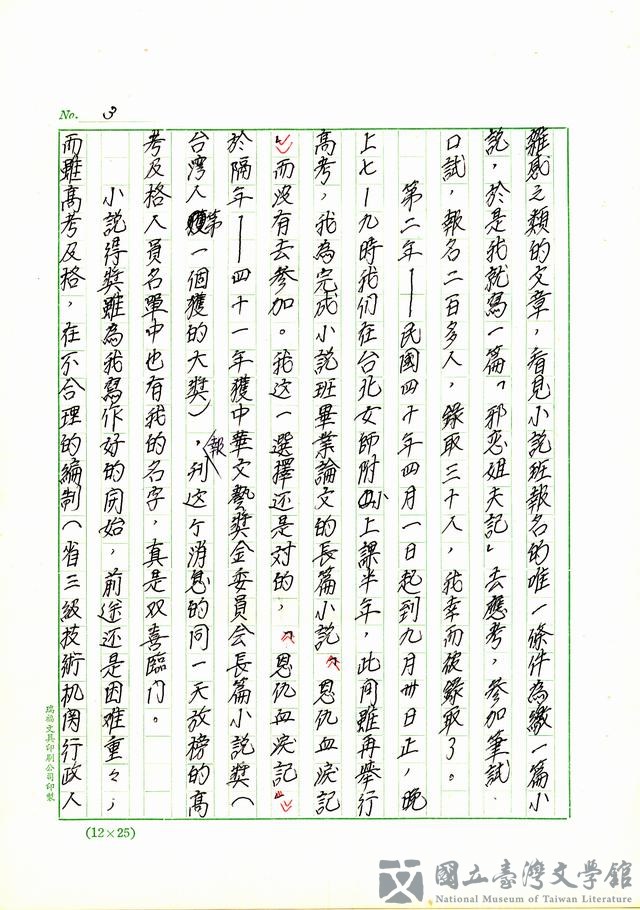 No. 3
雜感之類的文章，看見小説班報名的唯一條件為繳一篇小
説，於是我就寫一篇「邪恋姐夫記」去應考，參加筆試．
口試，報名二百多人，錄取三十人，我幸而被錄取了。
第二年——民國四十年四月一日起到九月卅日正，晚
上七—九時我们在台北女師附小上課半年，此间雖再舉行
高考，我為完成小説班畢業論文的長篇小説 恩仇血淚記
而没有去參加。我这一選擇还是对的，恩仇血淚記
於隔年——四十一年獲中華文藝獎金委員会長篇小説獎（
台灣人第一個獲的大獎），刋報这个消息的同一天放榜的高
考及格人員名單中也有我的名字，真是双喜臨门。
小説得獎雖為我寫作好的開始，前途还是困难重々；
而雖高考及格，在不合理的編制（省三級技術机関行政人
瑞福文具印刷公司印製
(12×25)
國立臺灣文學館
National Museum of Taiwan Literature